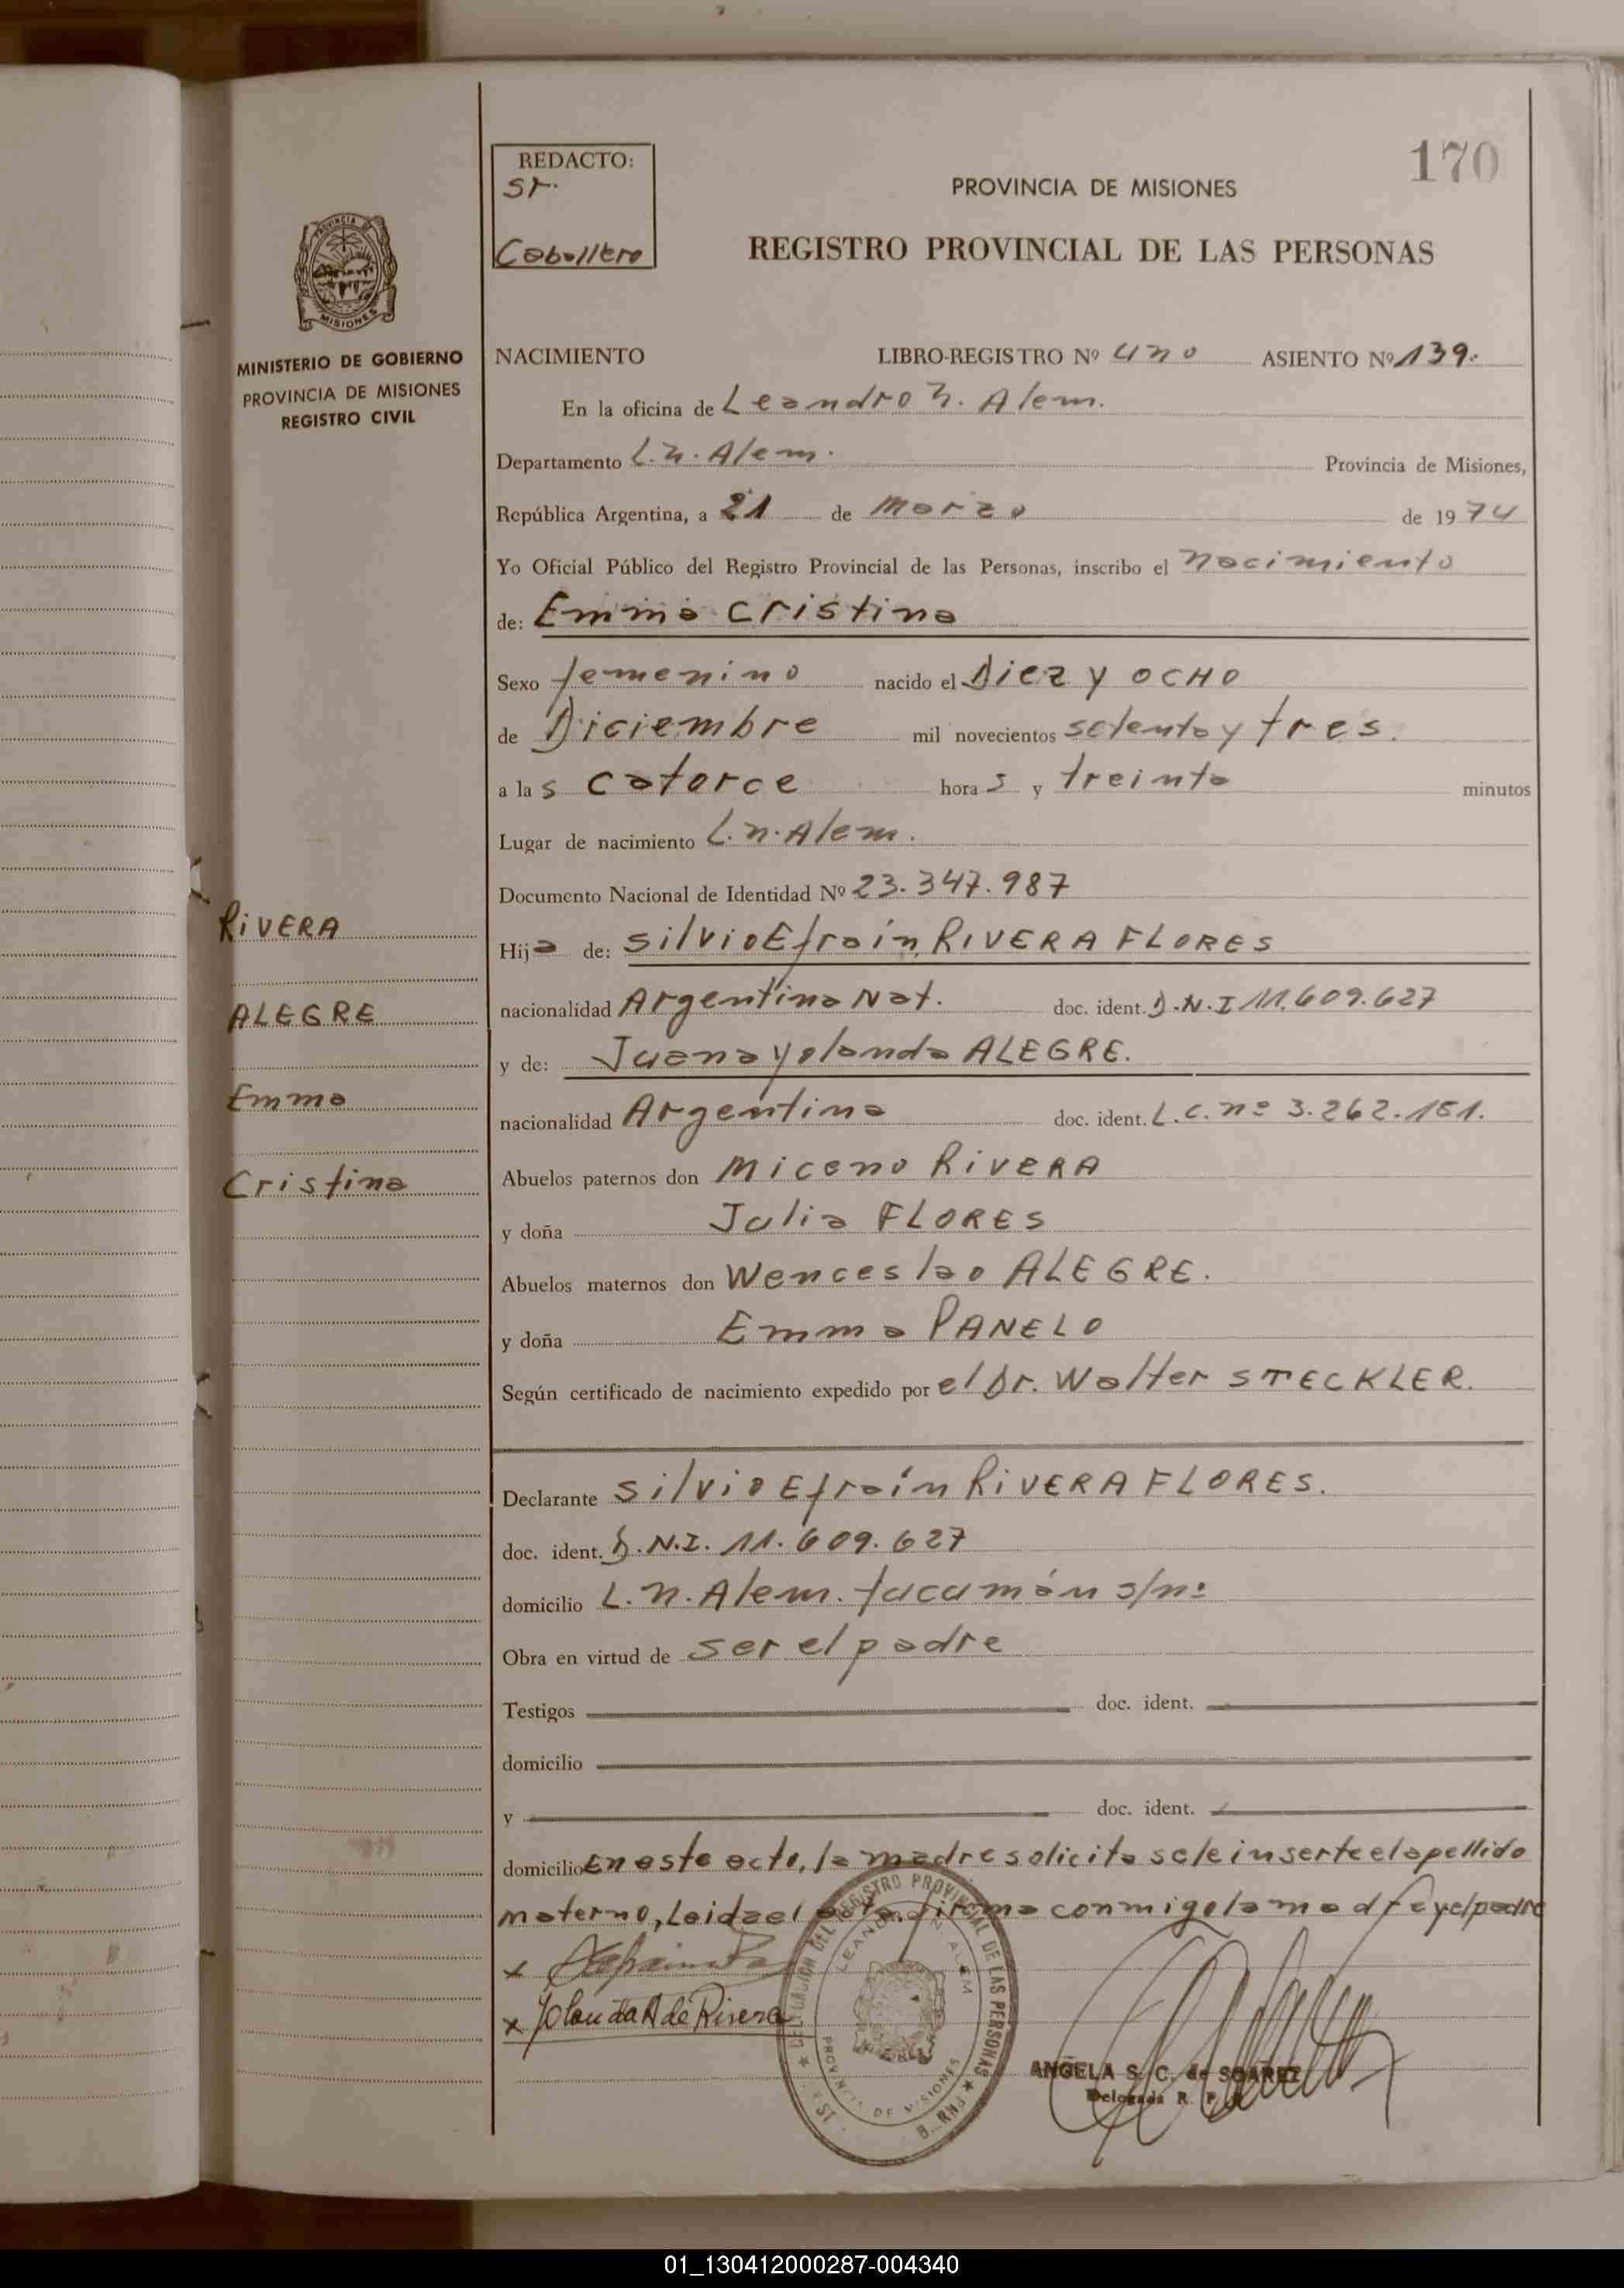 170
REDACTO:
Sr.
Caballero
PROVINCIA DE MISIONES
REGISTRO PROVINCIAL DE LAS PERSONAS
PROVINCIA DE
MISIONES
MINISTERIO DE GOBIERNO
PROVINCIA DE MISIONES
REGISTRO CIVIL
NACIMIENTO LIBRO-REGISTRO Nº uno ASIENTO Nº 139.
En la oficina de Leandro N. Alem.
Departamento L.N. Alem. Provincia de Misiones,
República Argentina, a 21 de Marzo de 1974
Yo Oficial Público del Registro Provincial de las Personas, inscribo el Nacimiento
de: Emma Cristina
Sexo femenino nacido el Diez y OCHO
de Diciembre mil novecientos setenta y tres.
a las catorce horas y treinta minutos
Lugar de nacimiento L.N. Alem.
Documento Nacional de Identidad Nº 23.347.987
Hija de: Silvio Efraín RIVERA FLORES
nacionalidad Argentina Nat. doc. ident. D.N.I 11.609.627
y de: Juana Yolanda ALEGRE.
nacionalidad Argentina doc. ident. L.C. nº 3.262.151.
Abuelos paternos don Miceno RIVERA
y doña Julia FLORES
Abuelos maternos don Wenceslao ALEGRE.
y doña Emma PANELO
Según certificado de nacimiento expedido por el Dr. Walter STECKLER.
RIVERA
ALEGRE
Emma
Cristina
Declarante Silvio Efraín RIVERA FLORES.
doc. ident. D.N.I. 11.609.627
domicilio L.N. Alem. tucumán s/nº
Obra en virtud de ser el padre
Testigos doc. ident.
domicilio
y doc. ident.
domicilio En este acto, la madre solicita se le inserte el apellido
materno, Leida el acta. firma conmigo la madre y el padre
x
x Yolanda A de Rivera
DELEGACION DEL REGISTRO PROVINCIAL DE LAS PERSONAS
LEANDRO N. ALEM
PROVINCIA DE MISIONES
ANGELA S. C. de SOAREZ
Delegada R. P.
01_130412000287-004340